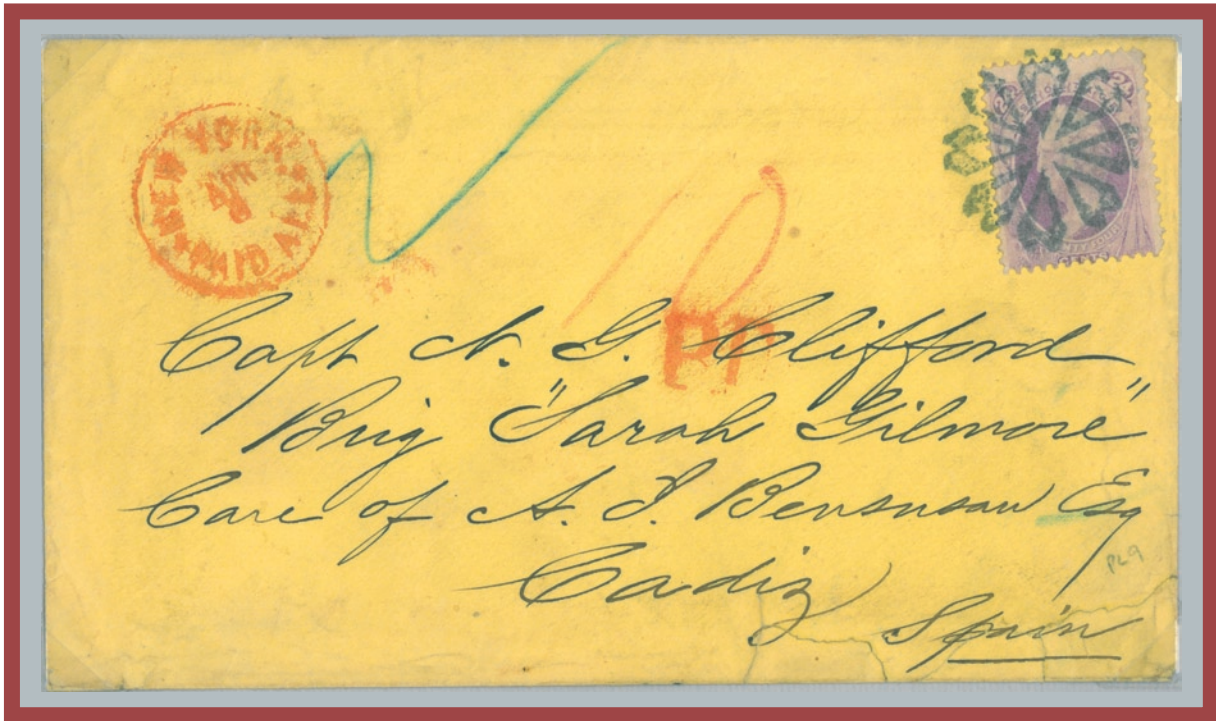 NEW YORK
PAID ALL
10
PP
Capt N. G. Clifford
Brig "Sarah Gilmore"
Care of A. J. Bensusan Esq
Cadiz
Spain
PL9
24
CENTS